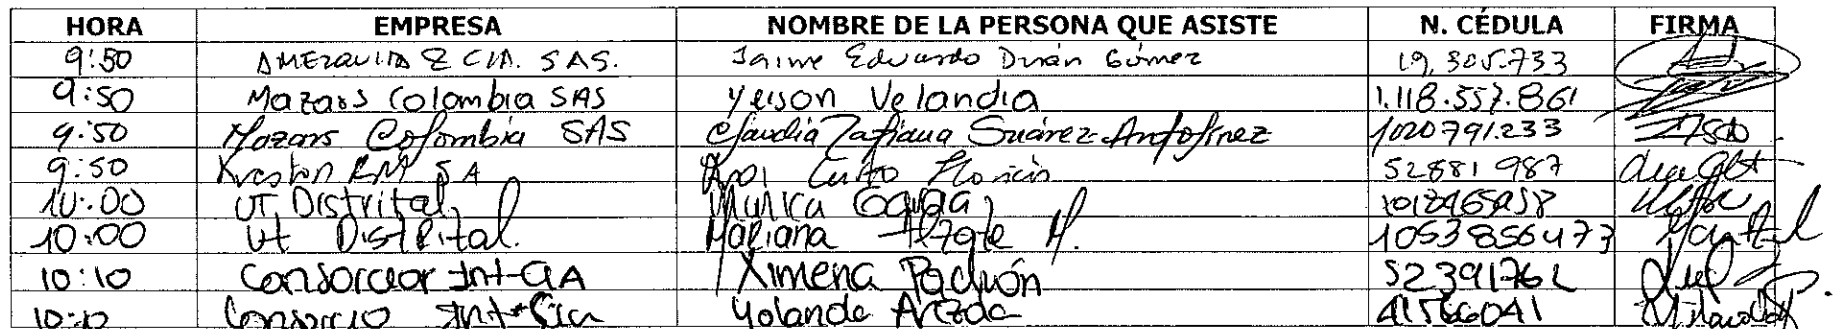 HORA EMPRESA NOMBRE DE LA PERSONA QUE ASISTE N. CÉDULA FIRMA
9:50 AMEZQUITA & CIA. SAS. Jaime Eduardo Durán Gómez 19.305.733
9:50 Mazars Colombia SAS Yeison Velandia 1.118.557.861
9:50 Mazars Colombia SAS Claudia Tatiana Suárez Antolinez 1020791233
9:50 Kreston RM SA 52881987
10:00 UT Distrital
10:00 Ut Distrital. Mariana Alzate M. 1053856473
10:10 Ximena Pachón
10:10 Consorcio Yolanda 41566041